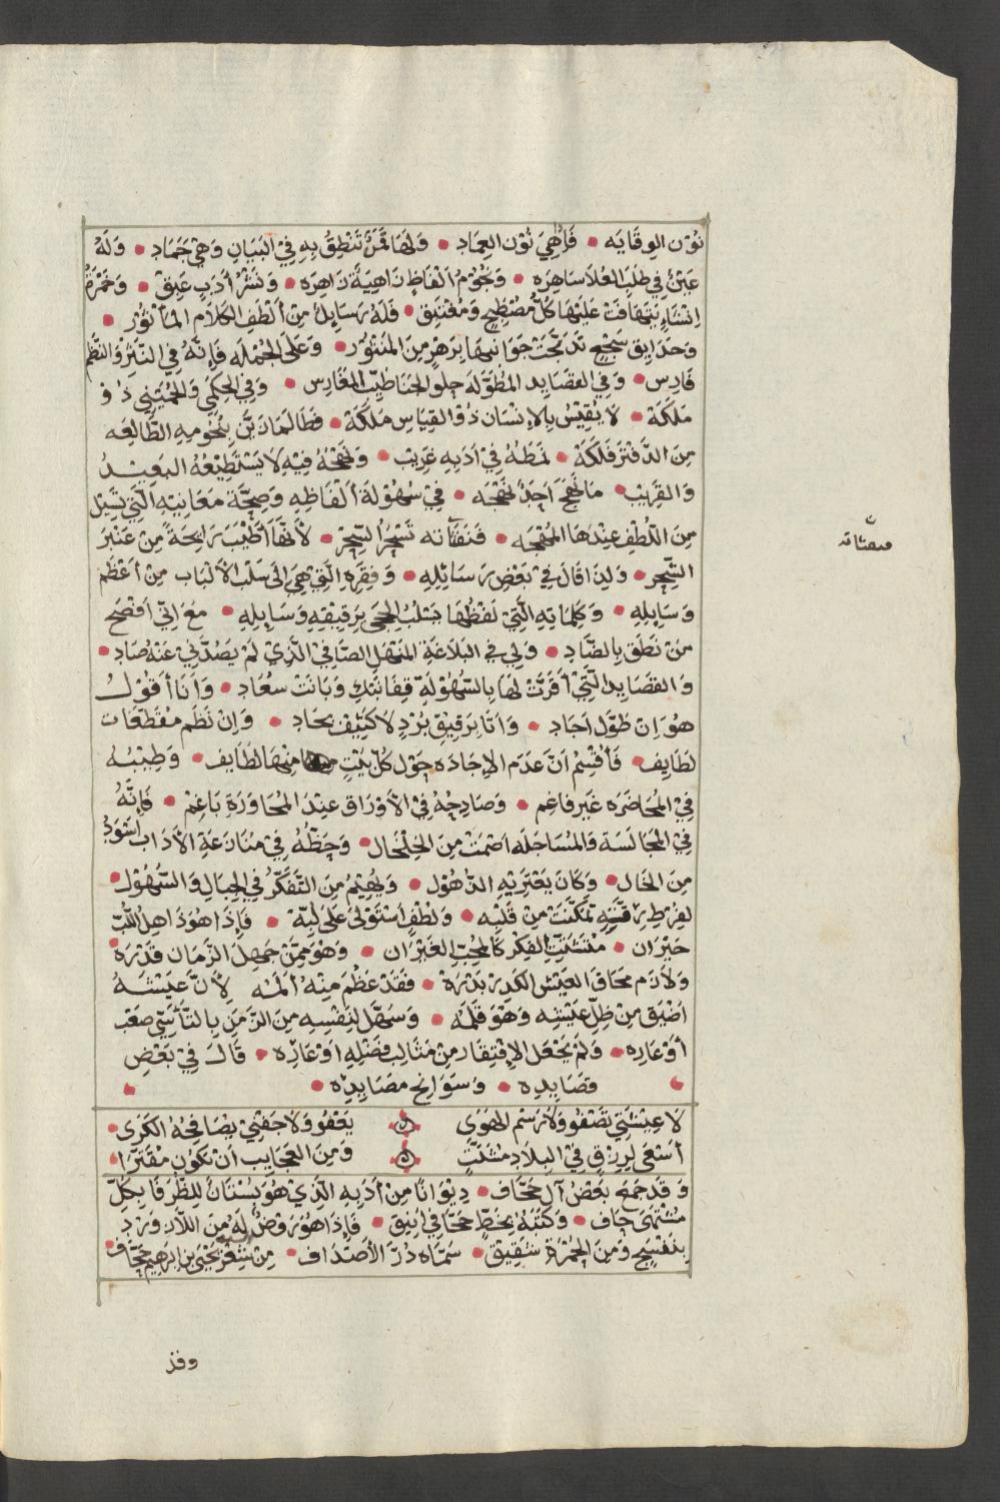 نُوْن الوِقَايَه • فَإِهِيَ نُوْن العِمَاد • وَلَهَا قَمَرٌ تَنْطِقُ بِهِ فِيْ البَيَانِ وَهْيَ جَمَاد • وَلَهُ
عَيْنٌ فِي طَلَبِ العُلَا سَاهِرَه • وَنُجُوْمُ اَلْفَاظٍ زَاهِيَةٌ زَاهِرَه • وَنَشْرُ أَدَبٍ عَبِقْ • وَخَمْرَةُ
اِنْشَاءٍ يَتَهَافَتُ عَلَيْهَا كُلُّ مُصْطَبِحٍ وَمُغْتَبِقْ • فَلَهُ رَسَايِلُ مِنْ أَلْطَفِ الكَلَامِ المَأْثُوْر •
وَحَدَايِقِ سَجْعٍ تَدَبَّجَتْ جَوَانِبُهَا بِزَهْرٍ مِنَ المَنْثُوْر • وَعَلَى الجُمْلَه فَاِنَّهُ فِي النَّثْرِ وَالنَّظْمِ
فَارِس • وَفِي القَصَايِدِ المُطَوَّلَه حِلْو الجَنَا طَيِّبُ المَغَارِس • وَفِي الحِكَمِيْ وَالحُمَيْنِي ذُوْ
مَلَكَهْ • لَا يَقِيْسُ بِالاِنْسَان ذُوْ القِيَاسِ مَلَكَهْ • فَطَالَمَا زَيَّنَ بِنُجُوْمِهِ الطَّالِعَه
مِنَ الدَّفْتَرِ فَلَكَهْ • نَمَطُهُ فِيْ اَدَبِهِ غَرِيْب • وَنَهْجُهُ فِيْهِ لَا يَسْتَطِيْعُهُ البَعِيْدُ
وَالقَرِيْب • مَا نَهَجَ اَحَدٌ نَهْجَه • فِيْ سُهُوْلَةِ أَلْفَاظِهِ وَصِحَّةِ مَعَانِيْهِ الَّتِيْ تَسِيْلُ
مِنَ اللُّطْفِ عِنْدَهَا المُهْجَه • فَنَفَثَاتُه تَسْحَرُ السِّحْرَ • لِأَنَّهَا أَطْيَبُ رَايِحَةً مِنْ عَنْبَرِ
الشِّحْر • وَلِذَا قَالَ فِيْ بَعْضِ رَسَائِلِهِ • وَفِقَرِهِ الَّتِيْ هِيَ إِلَى سَلْبِ الأَلْبَابِ مِنْ أَعْظَم
وَسَايِلِهِ • وَكَلِمَاتِهِ الَّتِيْ لَفْظُهَا يَسْلُبُ الحِجَى بِرَقِيْقِهِ وَسَايِلِهِ • مَعَ اِنِّي اَفْصَح
مَنْ نَطَقَ بِالضَّادِ • وَلِي فِي البَلَاغَةِ المَنْهَلُ الصَّافِيْ الَّذِيْ لَمْ يَصُدَّنِيْ عَنْهُ صَادِ •
وَالقَصَايِدِ الَّتِيْ أَقَرَّتْ لَهَا بِالسُّهُوْلَةِ قِفَا نَبْكِ وَبَانَتْ سُعَاد • وَأَنَا أَقُوْلُ
هُوَ اِنْ طَوَّلَ اَجَاد • وَاَتَا بِرَقِيْقِ بُرْدٍ لَا كَثِيْفِ بِجَاد • وَاِنْ نَظَمَ مُقَطَّعَات
لَطَايِف • فَأُقْسِمُ اَنَّ عَدَمَ الاِجَادَه حَوْل كُلِّ بَيْتٍ مِنْهَا لَطَايِف • وَطِيْبُه
فِيْ المُحَاضَرَه غَيْر فَاغِم • وَصَادِحُهُ فِيْ الأَوْرَاقِ عِنْدَ المُحَاوَرَةِ بَاغِمْ • فَاِنَّهُ
فِيْ المُجَالَسَة وَالمُسَاجَلَه اَصْمَتُ مِنَ الخَلْخَال • وَحَظُّهُ فِيْ مُنَازَعَةِ الأَدَابِ أَسْوَدُ
مِنَ الخَال • وَكَانَ يَعْتَرِيْهِ الذُّهُوْل • وَيَهِيْمُ مِنَ التَّفَكُّرِ فِي الجِبَالِ وَالسُّهُوْل •
لِفَرْطِ رِقَّةٍ تَمَكَّنَتْ مِنْ قَلْبِه • وَلُطْفٍ اسْتَوْلَى عَلَى لُبِّهْ • فَاِذَا هُوَ ذَاهِلُ اللُّبّ
حَيْرَان • مُتَشَتِّتُ الفِكْرِ كَالمُحِبِّ الغَيْرَان • وَهْوَ مِمَّنْ جَهِلَ الزَّمَان قَدْرَهْ
وَلَازَمَ مَحَاقُ العَيْشِ الكَدِرِ بَدْرَهْ • فَقَدْ عَظُمَ مِنْهُ أَلَمُه لِأَنَّ عَيْشَهُ
اَضْيَقُ مِنْ ظِلِّ عَيْشِه وَهْوَ قَلَمُه • وَسَهَّلَ لِنَفْسِهِ مِنَ الزَّمَنِ بِالتَّأَسِّي صَعْب
أَوْعَارِه • وَلَمْ يَجْعَلِ الاِفْتِقَار مِنْ مَثَالِبِ فَضْلِهِ اَوْ عَارِه • قَالَ فِيْ بَعْضِ
قَصَايِدِه • وَسَوَانِحِ مَصَايِدِه •
لَا عِيْشَتِيْ تَصْفُو وَلَا رَسْمُ الهَوَى ۞ يَعْفُو وَلَا جَفْنِيْ يُصَافِحُهُ الكَرَى •
أَسْعَى لِرِزْقٍ فِيْ البِلَادِ مُشَتَّتٍ ۞ وَمِنَ العَجَايِبِ اَنْ يَكُوْن مُقَتَّرَا •
وَقَدْ جَمَعَ بَعْضُ آلِ جَحَّاف • دِيْوَانًا مِنْ أَدَبِهِ الَّذِيْ هُوَ بُسْتَانٌ لِلظُّرَفَا بِكُلِّ
مُشْتَهَى جَاف • وَكَتَبَهُ بِخَطٍّ جَحَّافِيٍ اَنِيْق • فَاِذَا هُوَ رَوْضٌ لَهُ مِنَ اللَّازَوَرْدِ
بَنَفْسَج وَمِنَ الحُمْرَةِ شَقِيْق • سَمَّاه دُرَّ الأَصْدَاف • مِنْ شِعْرِ يَحْيَى بن اِبْرَهِيْم جَحَّاف •
فنفثاته
وقد